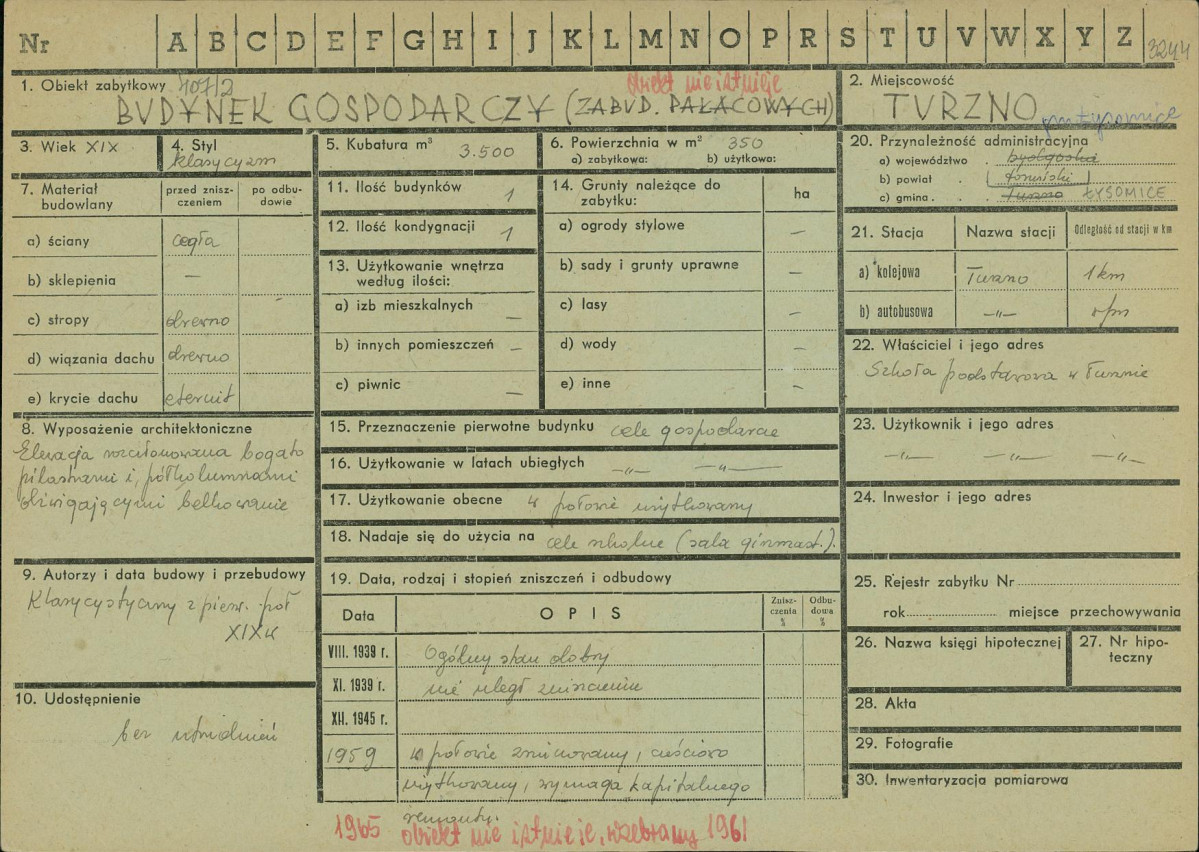 Nr A B C D E F G H I J K L M N O P R S T U V W X Y Z 3244
1. Obiekt zabytkowy 407/2 obiekt nie istnieje
BUDYNEK GOSPODARCZY (ZABUD. PAŁACOWYCH)
2. Miejscowość
TURZNO
3. Wiek XIX
4. Styl
klasycyzm
5. Kubatura m³ 3.500
6. Powierzchnia w m² 350
a) zabytkowa: b) użytkowa:
7. Materiał budowlany
przed zniszczeniem
po odbudowie
a) ściany cegła
b) sklepienia —
c) stropy drewno
d) wiązania dachu drewno
e) krycie dachu eternit
8. Wyposażenie architektoniczne
Elewacja rozczłonowana bogato
pilastrami i półkolumnami
dźwigającymi belkowanie
9. Autorzy i data budowy i przebudowy
Klasycystyczny z pierw. poł
XIX w
10. Udostępnienie
bez utrudnień
11. Ilość budynków 1
12. Ilość kondygnacji 1
13. Użytkowanie wnętrza
według ilości:
a) izb mieszkalnych —
b) innych pomieszczeń —
c) piwnic —
14. Grunty należące do
zabytku:
ha
a) ogrody stylowe —
b) sady i grunty uprawne —
c) lasy —
d) wody —
e) inne —
15. Przeznaczenie pierwotne budynku cele gospodarcze
16. Użytkowanie w latach ubiegłych —„— —„—
17. Użytkowanie obecne w połowie użytkowany
18. Nadaje się do użycia na cele szkolne (sala gimnast.).
19. Data, rodzaj i stopień zniszczeń i odbudowy
Data
OPIS
Zniszczenia %
Odbudowa %
VIII. 1939 r. Ogólny stan dobry
XI. 1939 r. nie uległ zniszczeniu
XII. 1945 r.
1959 w połowie zrujnowany, częściowo
użytkowany, wymaga kapitalnego
remontu.
1965 obiekt nie istnieje, rozebrany 1961
20. Przynależność administracyjna
a) województwo . bydgoskie
b) powiat . toruński
c) gmina . Turzno ŁYSOMICE
21. Stacja
Nazwa stacji
Odległość od stacji w km
a) kolejowa Turzno 1 km
b) autobusowa —„—
22. Właściciel i jego adres
Szkoła podstawowa w Turznie
23. Użytkownik i jego adres
—„— —„— —„—
24. Inwestor i jego adres
25. Rejestr zabytku Nr
rok miejsce przechowywania
26. Nazwa księgi hipotecznej
27. Nr hipoteczny
28. Akta
29. Fotografie
30. Inwentaryzacja pomiarowa